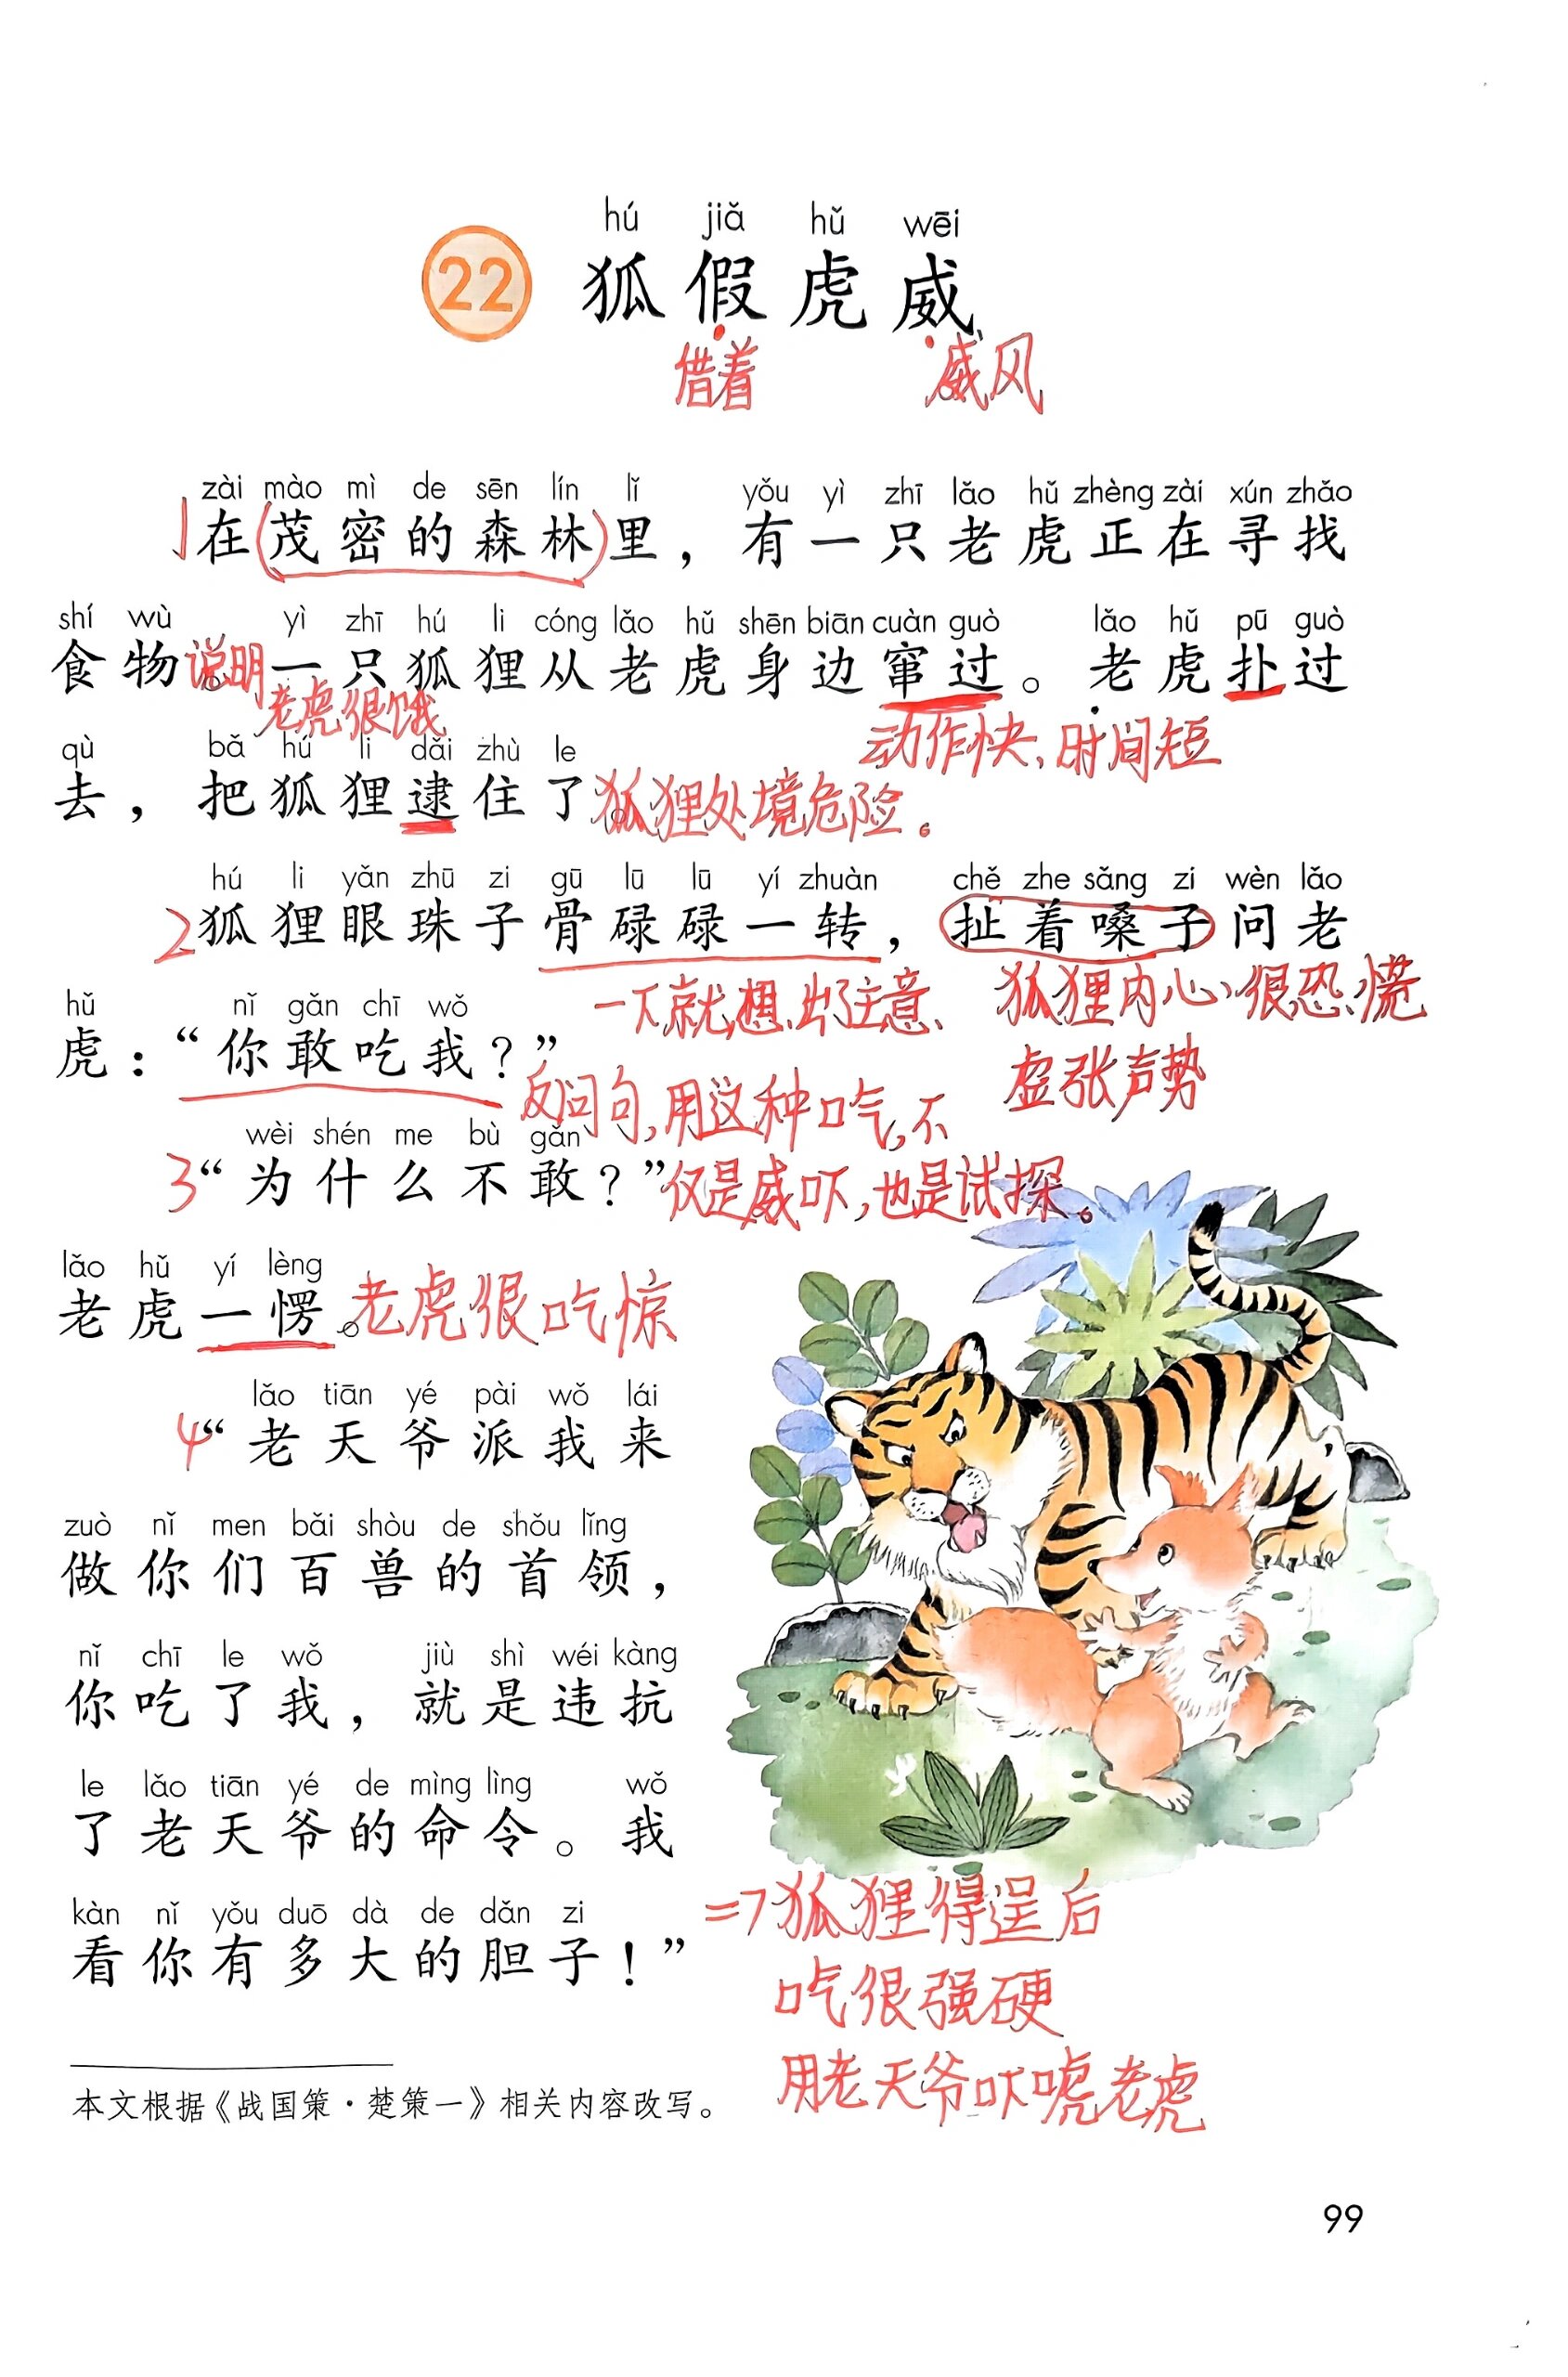 hú jiǎ hǔ wēi
22 狐假虎威
借着 威风
zài mào mì de sēn lín lǐ yǒu yì zhī lǎo hǔ zhèng zài xún zhǎo
1 在(茂密的森林)里，有一只老虎正在寻找
shí wù yì zhī hú li cóng lǎo hǔ shēn biān cuàn guò lǎo hǔ pū guò
食物。一只狐狸从老虎身边窜过。老虎扑过
说明
老虎很饿
动作快，时间短
qù bǎ hú li dǎi zhù le
去，把狐狸逮住了。
狐狸处境危险。
hú li yǎn zhū zi gū lū lū yí zhuàn chě zhe sǎng zi wèn lǎo
2 狐狸眼珠子骨碌碌一转，扯着嗓子问老
一下就想出了注意、 狐狸内心很恐慌
hǔ nǐ gǎn chī wǒ
虎：“你敢吃我？”
虚张声势
反问句，用这种口气，不
wèi shén me bù gǎn
3 “为什么不敢？”
仅是威吓，也是试探。
lǎo hǔ yí lèng
老虎一愣。
老虎很吃惊
lǎo tiān yé pài wǒ lái
4 “老天爷派我来
zuò nǐ men bǎi shòu de shǒu lǐng
做你们百兽的首领，
nǐ chī le wǒ jiù shì wéi kàng
你吃了我，就是违抗
le lǎo tiān yé de mìng lìng wǒ
了老天爷的命令。我
kàn nǐ yǒu duō dà de dǎn zi
看你有多大的胆子！”
=7狐狸得逞后
口气很强硬
用老天爷吓唬老虎
本文根据《战国策·楚策一》相关内容改写。
99